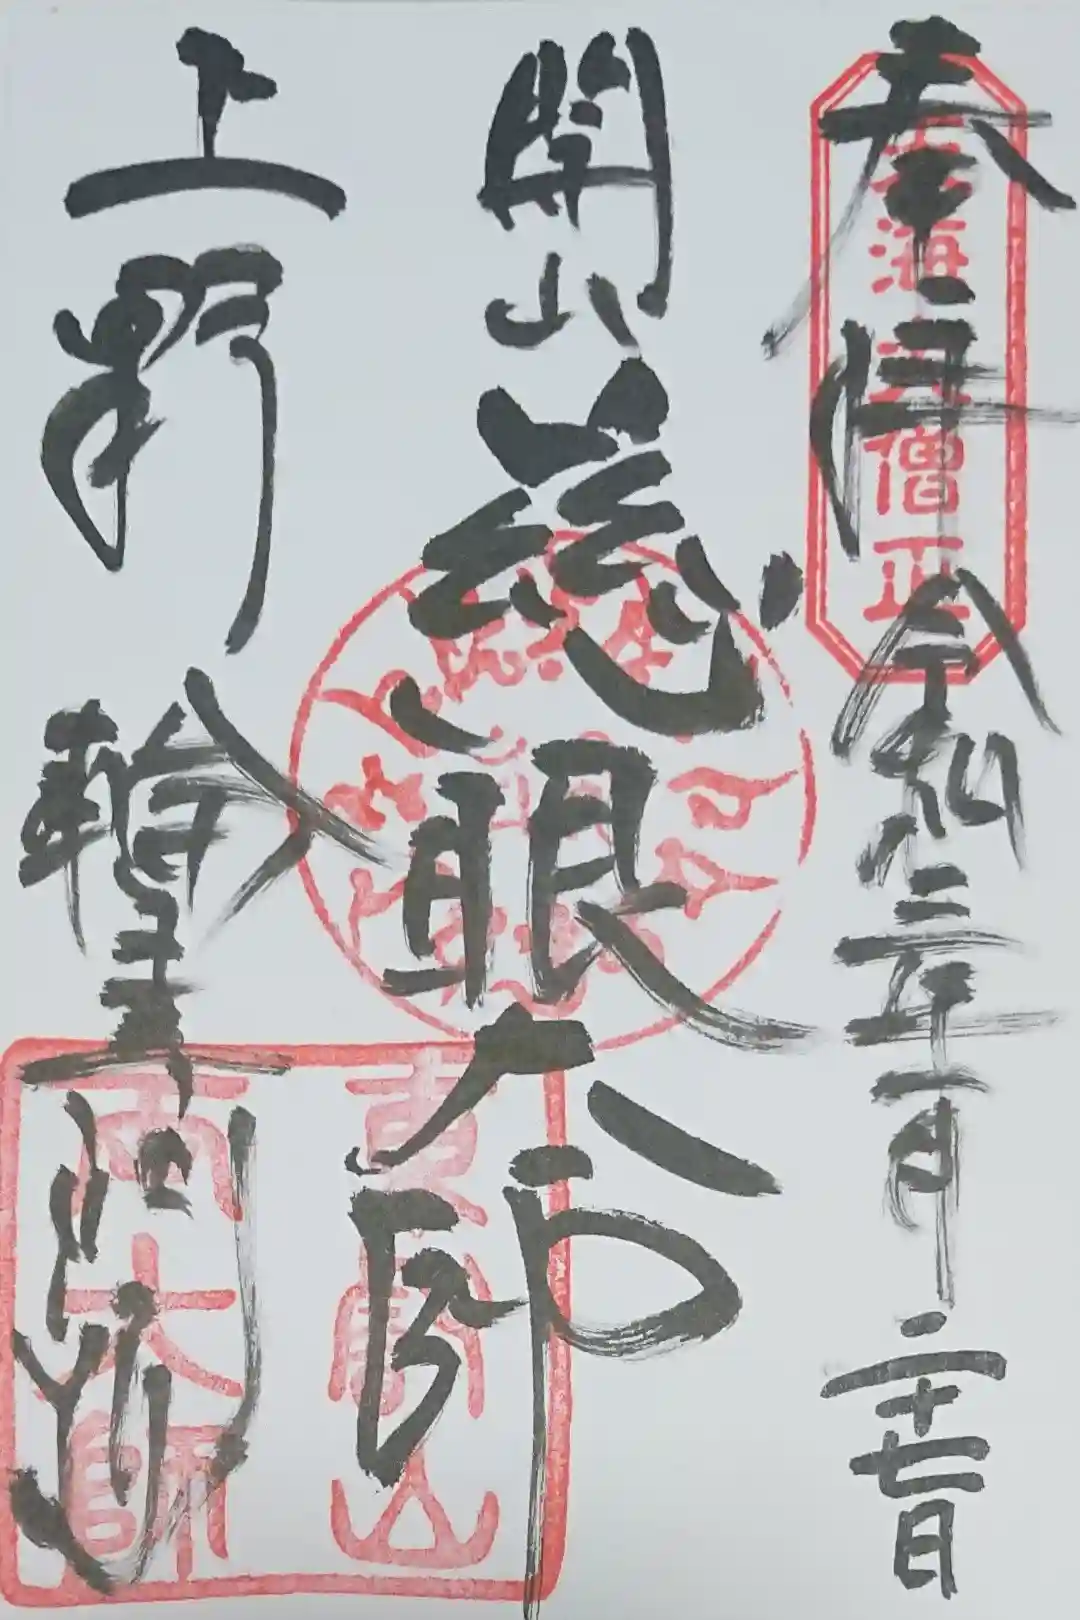 奉拝 令和三年一月二十七日
天海大僧正
開山 慈眼大師
上野 輪王寺門跡
東叡山
両大師